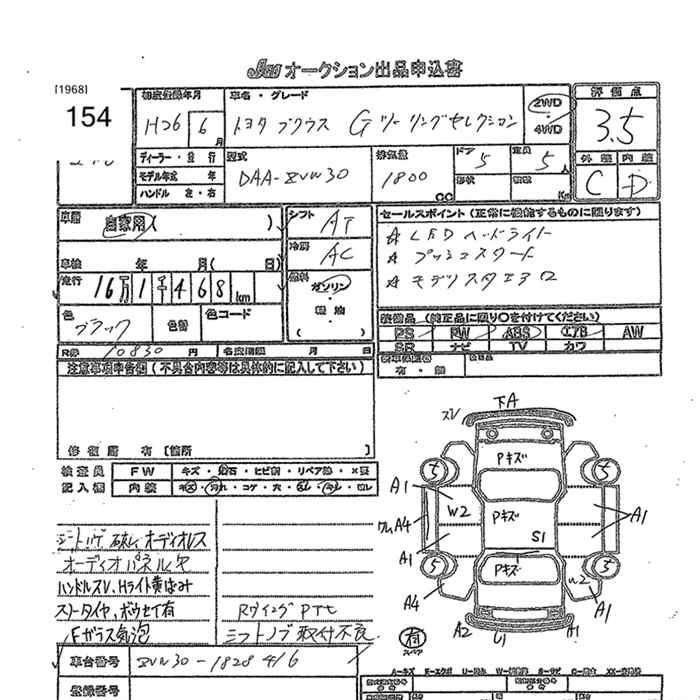 JU オークション出品申込書
[1968]
154
初度登録年月
H26 6月
車名・グレード
トヨタ プリウス Gツーリングセレクション
2WD
4WD
評価点
3.5
外装 内装
C D
ディーラー・並行
モデル年式 年
ハンドル 左・右
型式
DAA-ZVW30
排気量
1800 CC
ドア
5
形状
定員
5人
積載 Kg
車歴
自家用( )
車検 年 月( 日)
走行
16万1千468km
色
ブラック
色替
色コード
シフト
AT
冷房
AC
燃料
ガソリン
軽油
( )
セールスポイント(正常に機能するものに限ります)
☆LEDヘッドライト
☆プッシュスタート
☆モデリスタエアロ
装備品(純正品に限り○を付けてください)
PS PW ABS エアB AW
SR ナビ TV カワ
有・無
R券 10830 円
名変期限 月 日
注意事項申告欄(不具合内容等は具体的に記入して下さい)
修復歴 有 [箇所 ]
検査員 FW キズ・飛石・ヒビ割・リペア跡・×要
記入欄 内装 キズ・汚れ・コゲ・穴・スレ・キレ・ワレ
シートハゲ 破れ、オーディオレス
オーディオパネル欠
ハンドルスレ、Hライト黄ばみ
スノータイヤ、ボウセイ有
Fガラス気泡
RウィングPTt
シフトノブ取付不良
下A
スリ
Pキズ
5 5
A1
W2
Pキズ
ワレA4
S1
A1
A1
Pキズ
5 5
A4
W2
A1
A2
U1
A1
有
スペア
車台番号 ZVW30-1828416
登録番号
A=キズ E=エクボ U=凹み W=補修跡 S=サビ C=腐食 XX=交換済